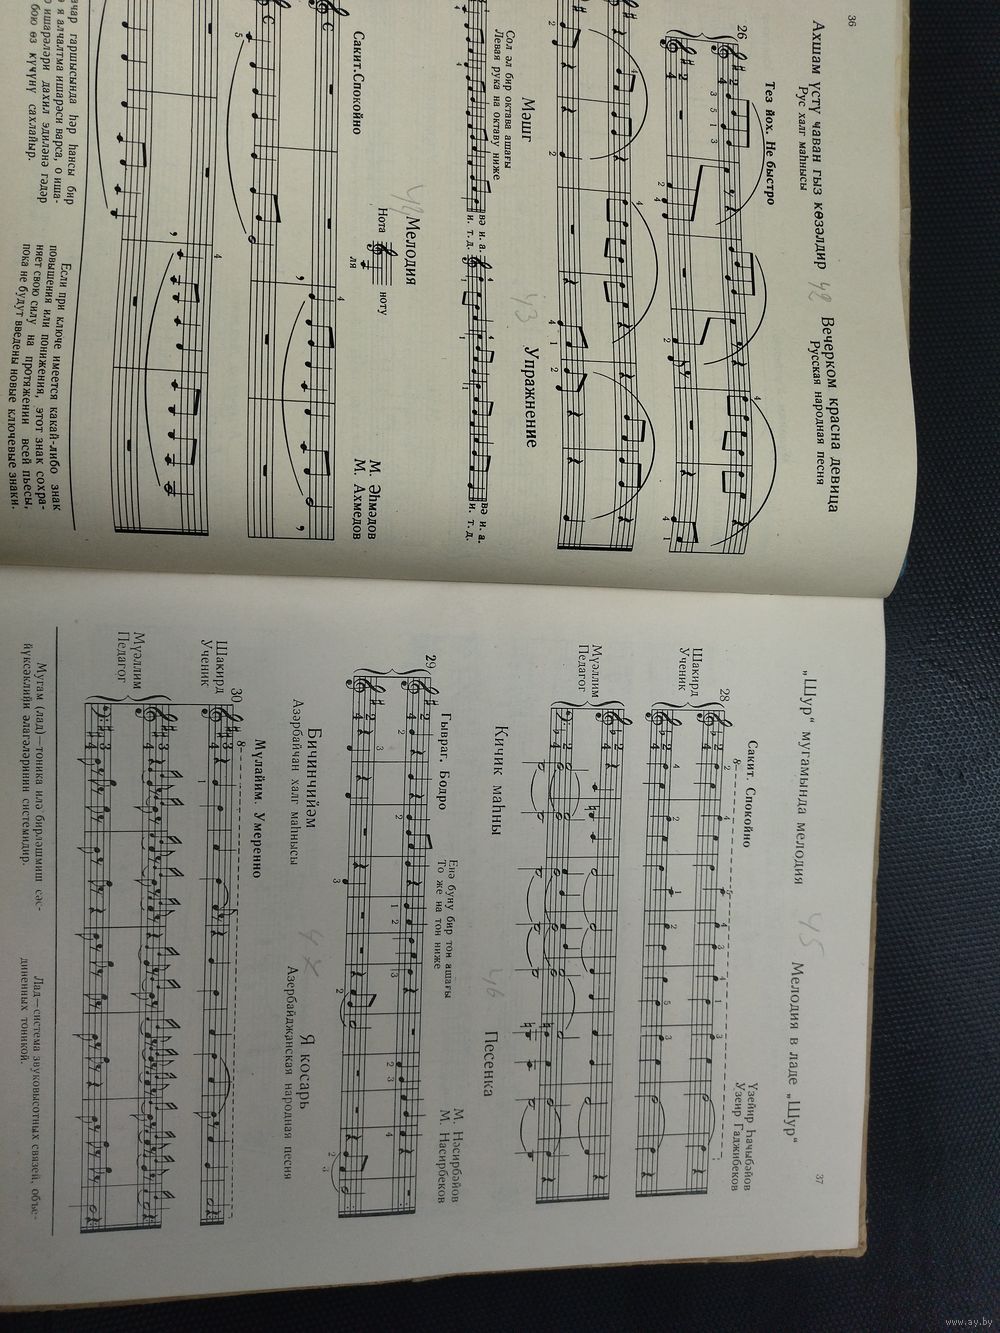 36
Ахшам үстү ҹаван гыз көзәлдир
Рус халг маһнысы
42
Вечерком красна девица
Русская народная песня
Тез йох. Не быстро
26
Мәшг
43
Упражнение
Сол әл бир октава ашағы
Левая рука на октаву ниже
вә и. а.
и. т. д.
вә и. а.
и. т. д.
Мелодия
Нота
ля
ноту
М. Әһмәдов
М. Ахмедов
Сакит. Спокойно
ачар гаршысында һәр һансы бир
я алчалтма ишарәси варса, о иша-
ишарәләри дахил эдиләнә гәдәр
бою өз күчүнү сахлайыр.
Если при ключе имеется какай-либо знак
повышения или понижения, этот знак сохра-
няет свою силу на протяжении всей пьесы,
пока не будут введены новые ключевые знаки.
37
„Шур“ мугамында мелодия
45
Мелодия в ладе „Шур“
Үзейир Һачыбәйов
Узеир Гаджибеков
Сакит. Спокойно
28
Шакирд
Ученик
Мүәллим
Педагог
Кичик маһны
46
Песенка
М. Нәсирбәйов
М. Насирбеков
Гывраг. Бодро
Енә буну бир тон ашағы
То же на тон ниже
29
Бичинчийәм
Азәрбайчан халг маһнысы
Я косарь
Азербайджанская народная песня
Мүлайим. Умеренно
30
Шакирд
Ученик
Мүәллим
Педагог
Мугам (лад)—тоника илә бирләшмиш сәс-
йүксәклийи әлагәләринин системидир.
Лад—система звуковысотных связей, объе-
диненных тоникой.
www.ay.by